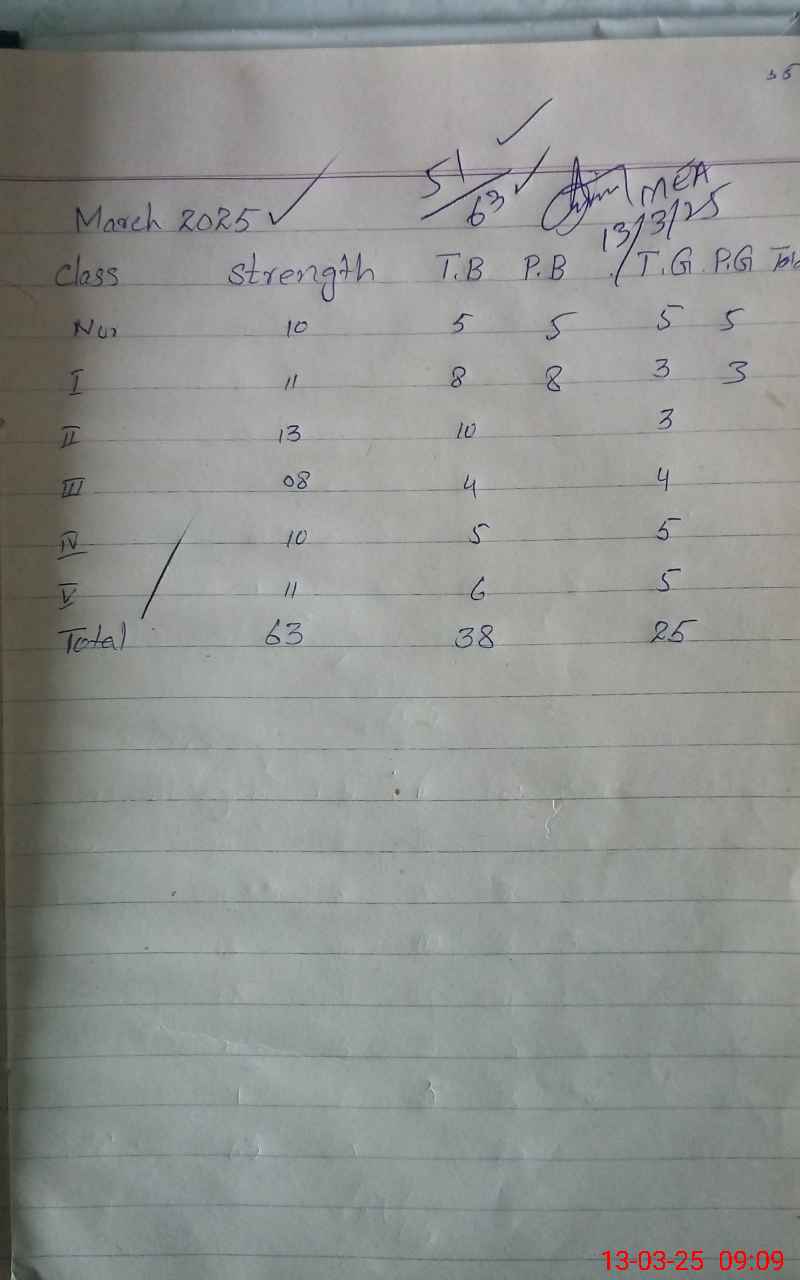 51/63
MEA
March 2025
13/3/25
Class Strength T.B P.B T.G P.G
Nur 10 5 5 5 5
I 11 8 8 3 3
II 13 10 3
III 08 4 4
IV 10 5 5
V 11 6 5
Total 63 38 25
13-03-25 09:09